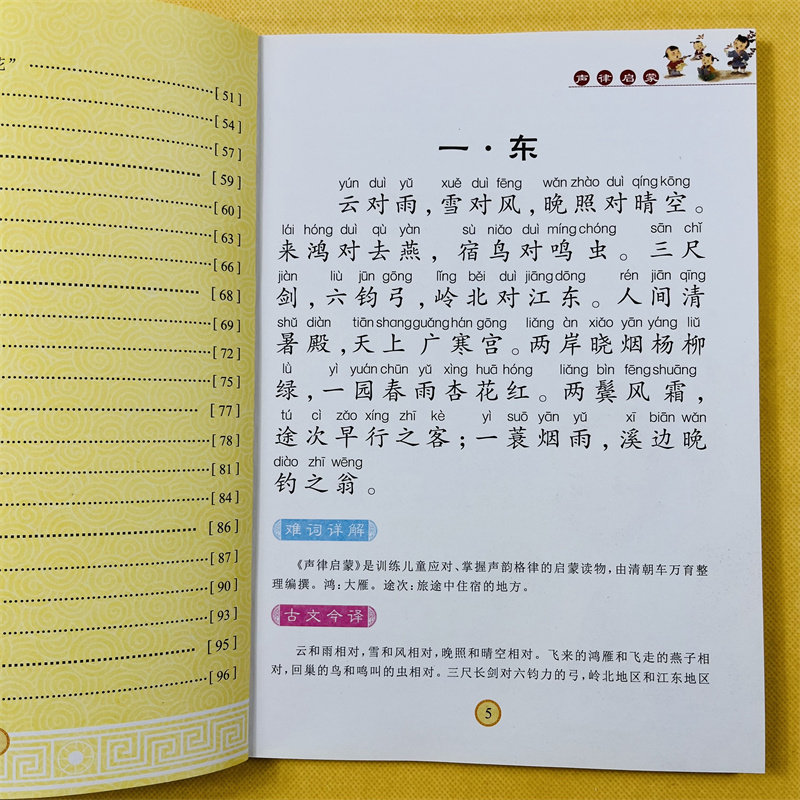 花”
[51]
[54]
[57]
[59]
[60]
[63]
[66]
[68]
[69]
[72]
[75]
[77]
[78]
[81]
[84]
[86]
[87]
[90]
[93]
[95]
[96]
声律启蒙
一·东
yún duì yǔ xuě duì fēng wǎn zhào duì qíng kōng
云对雨，雪对风，晚照对晴空。
lái hóng duì qù yàn sù niǎo duì míng chóng sān chǐ
来鸿对去燕，宿鸟对鸣虫。三尺
jiàn liù jūn gōng lǐng běi duì jiāng dōng rén jiān qīng
剑，六钧弓，岭北对江东。人间清
shǔ diàn tiān shang guǎng hán gōng liǎng àn xiǎo yān yáng liǔ
暑殿，天上广寒宫。两岸晓烟杨柳
lǜ yì yuán chūn yǔ xìng huā hóng liǎng bìn fēng shuāng
绿，一园春雨杏花红。两鬓风霜，
tú cì zǎo xíng zhī kè yì suō yān yǔ xī biān wǎn
途次早行之客；一蓑烟雨，溪边晚
diào zhī wēng
钓之翁。
难词详解
《声律启蒙》是训练儿童应对、掌握声韵格律的启蒙读物，由清朝车万育整
理编撰。鸿：大雁。途次：旅途中住宿的地方。
古文今译
云和雨相对，雪和风相对，晚照和晴空相对。飞来的鸿雁和飞走的燕子相
对，回巢的鸟和鸣叫的虫相对。三尺长剑对六钧力的弓，岭北地区和江东地区
5